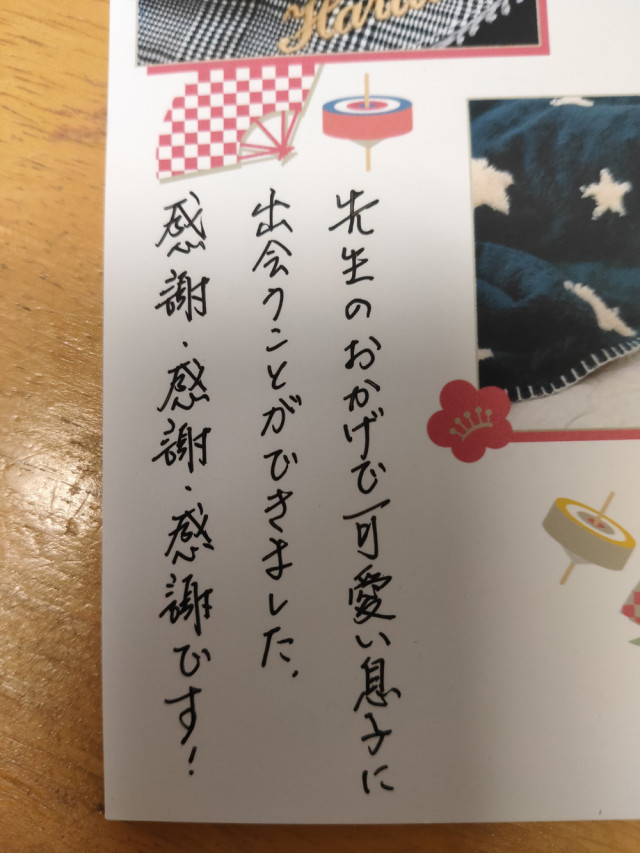 先生のおかげで可愛い息子に
出会うことができました.
感謝・感謝・感謝です!